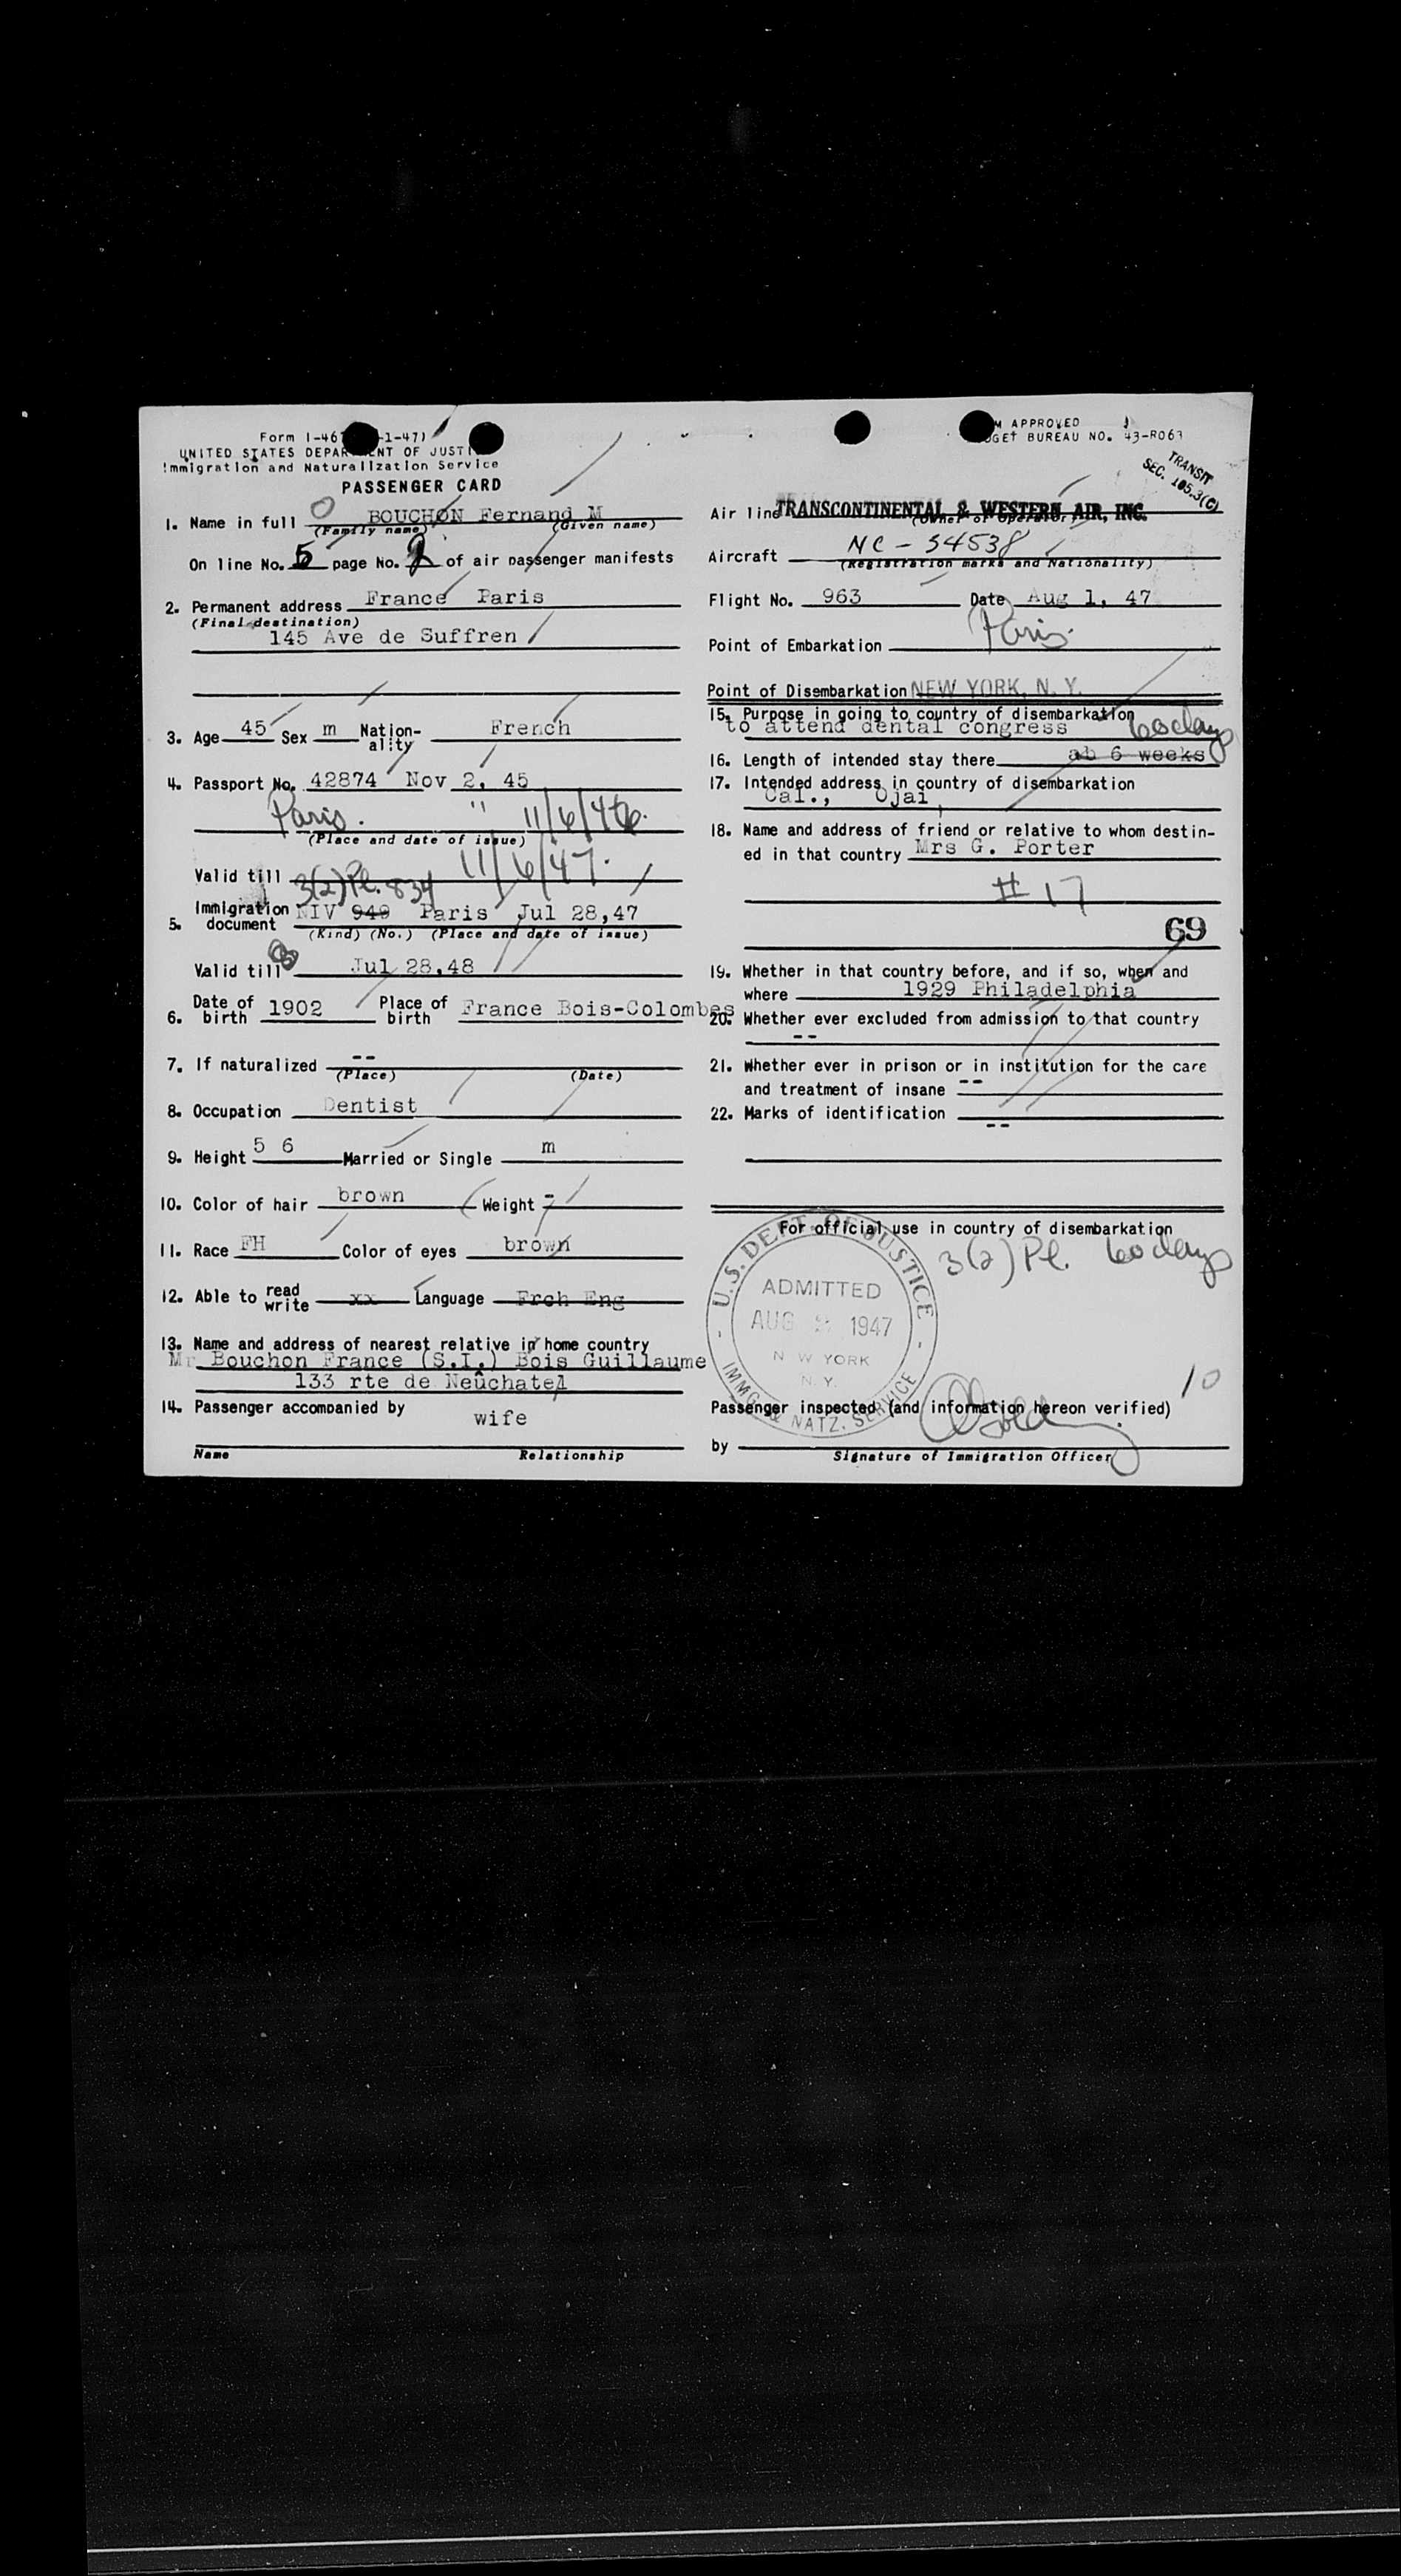 Form I-46 -1-47)
UNITED STATES DEPARTMENT OF JUSTI
Immigration and Naturalization Service
PASSENGER CARD
1. Name in full BOUCHON Fernand M
(Family name) (Given name)
On line No. 5 page No. 2 of air passenger manifests
2. Permanent address France Paris
(Final destination)
145 Ave de Suffren
3. Age 45 Sex m Nation-ality French
4. Passport No. 42874 Nov 2, 45
Paris. " 11/6/46.
(Place and date of issue)
Valid till 11/6/47.
3(2) Pl. 834
5. Immigration document NIV 949 Paris Jul 28,47
(Kind) (No.) (Place and date of issue)
Valid till Jul 28,48
6. Date of birth 1902 Place of birth France Bois-Colombes
7. If naturalized --
(Place) (Date)
8. Occupation Dentist
9. Height 5 6 Married or Single m
10. Color of hair brown Weight -
11. Race FH Color of eyes brown
12. Able to read write xx Language Frch Eng
13. Name and address of nearest relative in home country
Mr Bouchon France (S.I.) Bois Guillaume
133 rte de Neûchatel
14. Passenger accompanied by
wife
Name Relationship
M APPROVED
GET BUREAU NO. 43-R063
TRANSIT
SEC. 105.3(C)
Air line TRANSCONTINENTAL & WESTERN AIR, INC.
(Owner or Operator)
Aircraft NC-34538
(Registration marks and Nationality)
Flight No. 963 Date Aug 1, 47
Point of Embarkation Paris.
Point of Disembarkation NEW YORK, N. Y.
15. Purpose in going to country of disembarkation
to attend dental congress 60 days
16. Length of intended stay there ab 6 weeks
17. Intended address in country of disembarkation
Cal., Ojai
18. Name and address of friend or relative to whom destin-
ed in that country Mrs G. Porter
# 17
69
19. Whether in that country before, and if so, when and
where 1929 Philadelphia
20. Whether ever excluded from admission to that country
--
21. Whether ever in prison or in institution for the care
and treatment of insane --
22. Marks of identification
--
For official use in country of disembarkation
3(2) Pl. 60 days
U.S. DEPT. OF JUSTICE
ADMITTED
AUG 1947
N W YORK
N. Y.
IMMG. & NATZ. SERVICE
10
Passenger inspected (and information hereon verified)
by
Signature of Immigration Officer